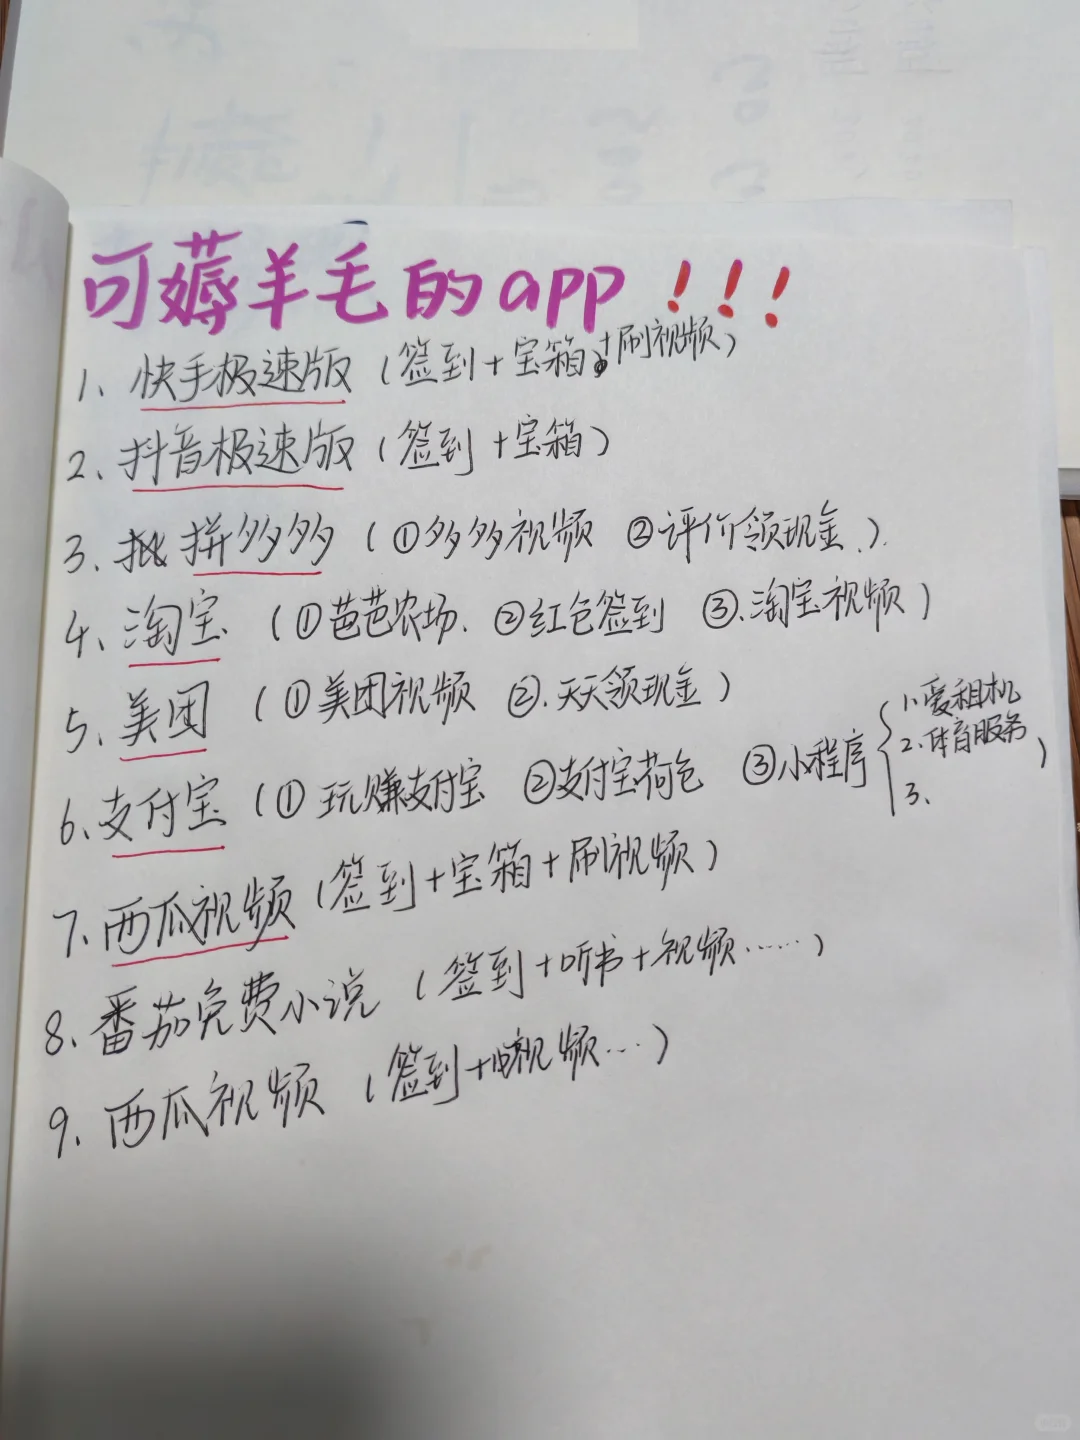 可薅羊毛的app!!!
1、快手极速版（签到+宝箱+刷视频）
2、抖音极速版（签到+宝箱）
3、拼多多（①多多视频 ②评价领现金、）
4、淘宝（①芭芭农场、②红包签到 ③、淘宝视频）
5、美团（①美团视频 ②、天天领现金）
6、支付宝（①玩赚支付宝 ②支付宝荷包 ③小程序
1、爱相机
2、体育服务
3、
）
7、西瓜视频（签到+宝箱+刷视频）
8、番茄免费小说（签到+听书+视频……）
9、西瓜视频（签到+视频…）